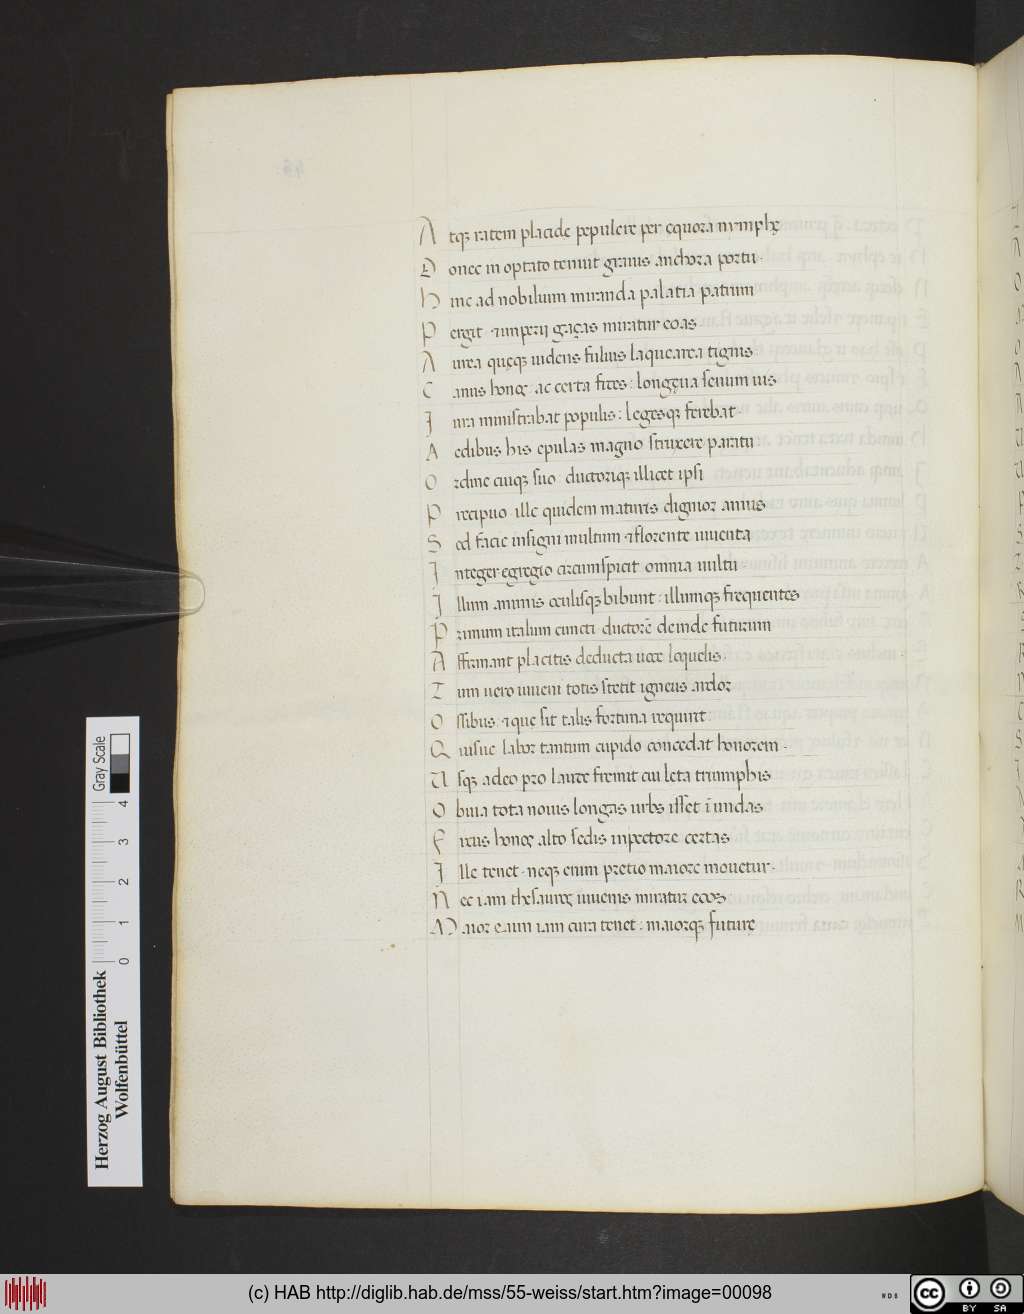 Atqꝫ ratem placide pepulere per equora nymphę
Donec in optato tenuit grauis anchora portu.
Hinc ad nobilium miranda palatia patrum
Pergit ⁊ imperij gaças miratur eoas
Aurea quęqꝫ uidens fuluis laquearea tignis
Canus honoꝛ ac certa fides: longęua senum uis
Iura ministrabat populis: legesqꝫ ferebat
Aedibus his epulas magno struxere paratu
Oꝛdine cuiqꝫ suo ductoꝛiqꝫ illicet ipsi
Precipuo ille quidem maturis dignioꝛ annis
Sed facie insigni multum ⁊ florente iuuenta
Integer egregio circumspicit omnia uultu
Illum animis oculisqꝫ bibunt: illumqꝫ frequentes
Primum italum cuncti ductorē deinde futurum
Affirmant placitis deducta uoce loquelis.
Tum uero iuueni totis stetit igneus ardoꝛ
Ossibus ⁊ que sit talis foꝛtuna requirit
Quisue laboꝛ tantum cupido concedat honorem.
Usqꝫ adeo pro lauro fremit cui leta triumphis
Obuia tota nouis longas urbs isset ī undas
Fixus honoꝛ alto sedis in pectore certas
Ille tenet. neqꝫ enim pretio maiore mouetur.
Nec iam thesauros iuuenis miratur eoos.
Maioꝛ eum iam cura tenet: maioꝛqꝫ future
Herzog August Bibliothek
Wolfenbüttel
0 1 2 3 4
Gray Scale
(c) HAB http://diglib.hab.de/mss/55-weiss/start.htm?image=00098
cc
BY SA